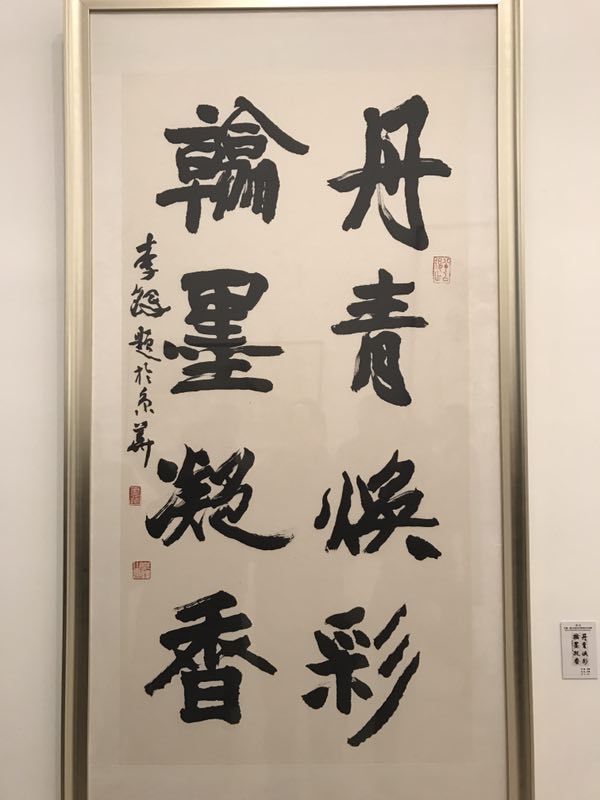 丹青焕彩
翰墨凝香
李铎题於京华